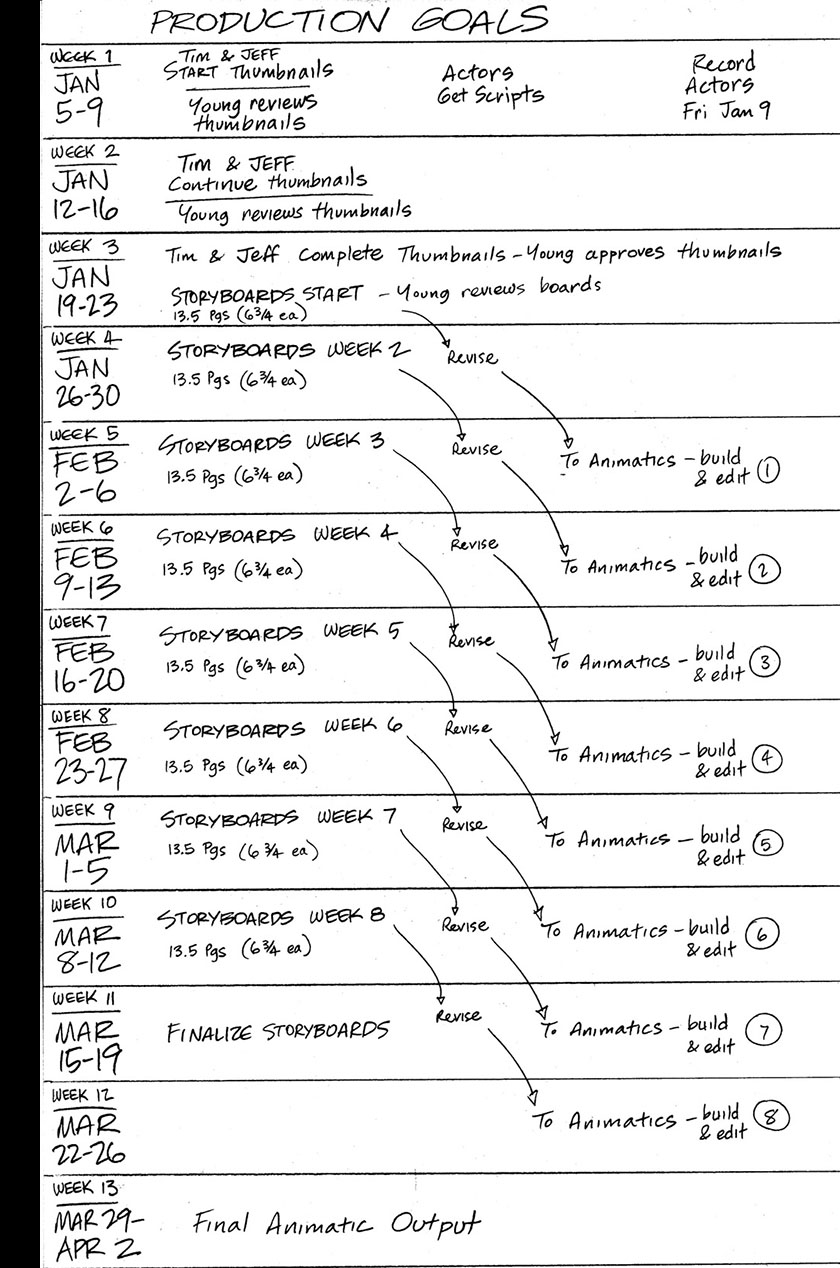 PRODUCTION GOALS
WEEK 1
JAN
5-9
Tim & JEFF
START Thumbnails
Young reviews
thumbnails
Actors
Get Scripts
Record
Actors
Fri Jan 9
WEEK 2
JAN
12-16
Tim & JEFF
Continue thumbnails
Young reviews thumbnails
WEEK 3
JAN
19-23
Tim & Jeff Complete Thumbnails - Young approves thumbnails
STORYBOARDS START - Young reviews boards
13.5 Pgs (6 3/4 ea)
WEEK 4
JAN
26-30
STORYBOARDS WEEK 2
13.5 Pgs (6 3/4 ea)
Revise
WEEK 5
FEB
2-6
STORYBOARDS WEEK 3
13.5 Pgs (6 3/4 ea)
Revise
To Animatics - build
& edit 1
WEEK 6
FEB
9-13
STORYBOARDS WEEK 4
13.5 Pgs (6 3/4 ea)
Revise
To Animatics - build
& edit 2
WEEK 7
FEB
16-20
STORYBOARDS WEEK 5
13.5 Pgs (6 3/4 ea)
Revise
To Animatics - build
& edit 3
WEEK 8
FEB
23-27
STORYBOARDS WEEK 6
13.5 Pgs (6 3/4 ea)
Revise
To Animatics - build
& edit 4
WEEK 9
MAR
1-5
STORYBOARDS WEEK 7
13.5 Pgs (6 3/4 ea)
Revise
To Animatics - build
& edit 5
WEEK 10
MAR
8-12
STORYBOARDS WEEK 8
13.5 Pgs (6 3/4 ea)
Revise
To Animatics - build
& edit 6
WEEK 11
MAR
15-19
FINALIZE STORYBOARDS
Revise
To Animatics - build
& edit 7
WEEK 12
MAR
22-26
To Animatics - build
& edit 8
WEEK 13
MAR 29-
APR 2
Final Animatic Output